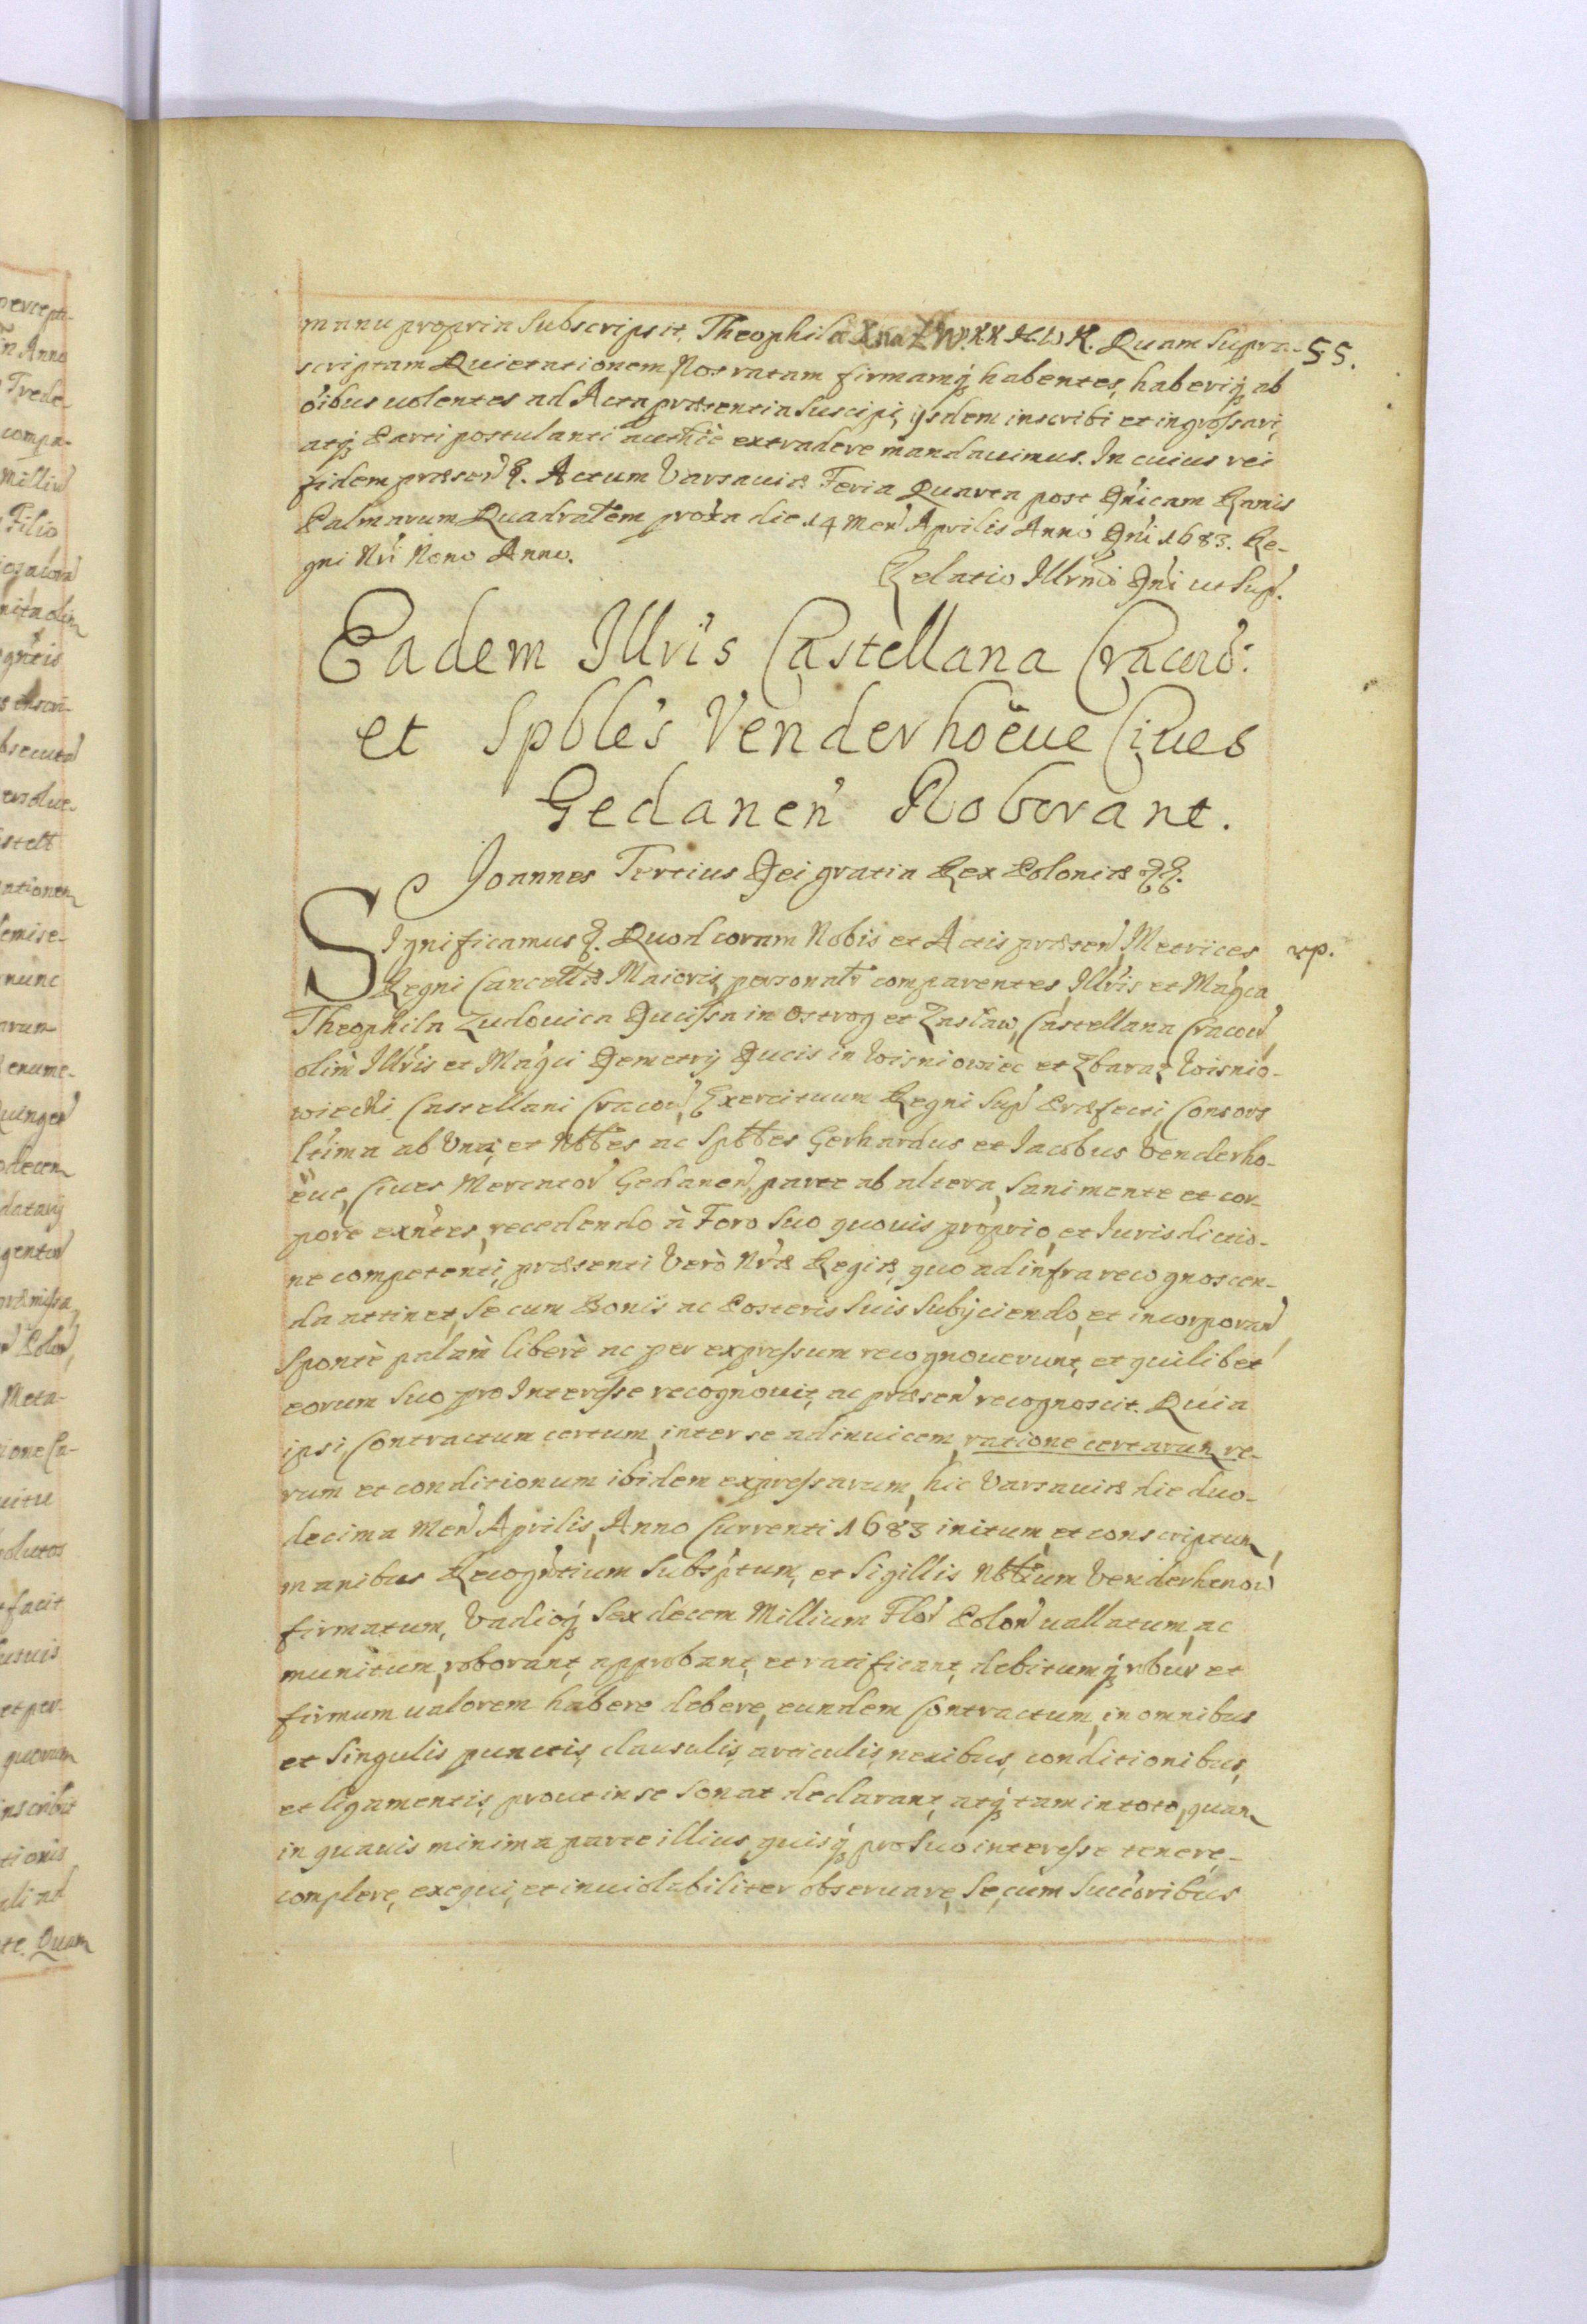 manu propria Subscripsit. Theophila Xna Z W. KK H. W K. Quam Supra-
55.
scriptam Quietationem Nos ratam firmamq́ habentes, haberiq́ ab
óibus uolentes ad Acta præsentia Suscipi, ijsdem inscribi et ingrossari,
atq́ Parti postulanti authcè extradere mandauimus. In cuius rei
fidem præsen̄ &. Actum Varsauiæ Feria Quarta post Dn̄icam Ramis
Palmarum Quadrālem prox̄a die 14 Men̄ Aprilis Anno Dn̄i 1683. Re-
gni Nr̄i Nono Anno.
Relatio Illrm̄i Dn̄i ut Sup̄.
Eadem Illrīs Castellana Cracoū:
et Spblēs Venderhoëue Ciues
Gedanen̄ Roborant.
Joannes Tertius Dei gratia Rex Poloniæ &&.
Significamus &. Quod coram Nobis et Actis præsen̄ Metrices
rp.
Regni Cancellæ Maioris, personalr̄ comparentes, Illrīs et Magcā
Theophila Ludouica Ducissa in Ostrog et Zasław, Castellana Cracoū,
olim̄ Illrīs et Magcī Demetrij Ducis in Wisniowiec et Zbaraz Wisnio-
wiecki Castellani Cracoū, Exercituum Regni Sup̄ Præfecti, Consors
ltīma ab Una; et Nbbēs ac Spbbēs Gerhardus et Jacobus Venderho-
ëue, Ciues Mercator̄ Gedanen̄, parte ab altera, Sani mente et cor-
pore exn̄tes, recedendo à Foro Suo quouis proprio, et Jurisdictio-
ne competenti, præsenti Verò Nr̄æ Regiæ, quo ad infra recognoscen-
da attinet, Se cum Bonis ac Posteris Suis Subijciendo, et incorporan̄,
Spontè palàm liberè ac per expressum recognouerunt, et quilibet
eorum Suo pro Interesse recognouit, ac præsen̄ recognoscit. Quia
ipsi, Contractum certum, inter se adinuicem, ratione certarum re-
rum et conditionum ibidem expressarum, hic Varsauiæ die duo-
decima Men̄ Aprilis, Anno Currenti 1683 initum, et conscriptum,
manibus Recogn̄tium Subsp̄tum, et Sigillis Nbbīum Venderhenow
firmatum, Vadioq́ Sexdecem Millium Flor̄ Polon̄ uallatum, ac
munitum, roborant, approbant, et ratificant, debitumq́ robur et
firmum ualorem habere debere, eundem Contractum, in omnibus
et Singulis punctis, clausulis, articulis, nexibus, conditionibus,
et ligamentis, prout in se Sonat declarant, atq́ tam in toto, quam
in quauis minima parte illius, quisq́ pro Suo interesse tenere,
complere, exequi, et inuiolabiliter obseruare, Se, cum Succoribus